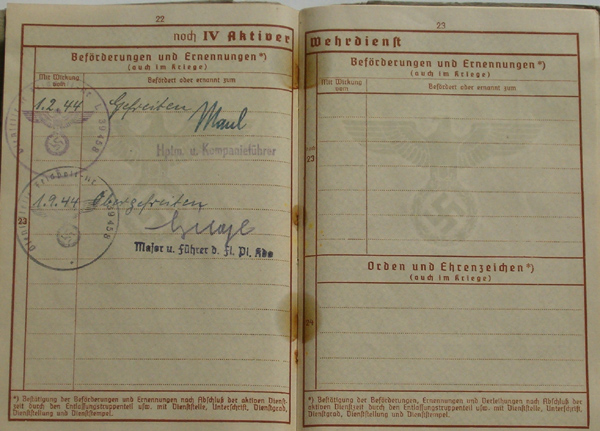 22
noch IV Aktiver
Beförderungen und Ernennungen*)
(auch im Kriege)
Mit Wirkung vom
Befördert oder ernannt zum
1.2.44 Gefreiten
Maul
Hptm. u. Kompanieführer
39458
1.9.44 Obergefreiten
39458
23
Major u. Führer d. Fl. Pl. Kdo
*) Bestätigung der Beförderungen und Ernennungen nach Abschluß der aktiven Dienst-
zeit durch den Entlassungstruppenteil usw. mit Dienststelle, Unterschrift, Dienstgrad,
Dienststellung und Dienststempel.
23
Wehrdienst
Beförderungen und Ernennungen*)
(auch im Kriege)
Mit Wirkung vom
Befördert oder ernannt zum
23
Orden und Ehrenzeichen*)
(auch im Kriege)
24
*) Bestätigung der Beförderungen, Ernennungen und Verleihungen nach Abschluß der
aktiven Dienstzeit durch den Entlassungstruppenteil usw. mit Dienststelle, Unterschrift,
Dienstgrad, Dienststellung und Dienststempel.